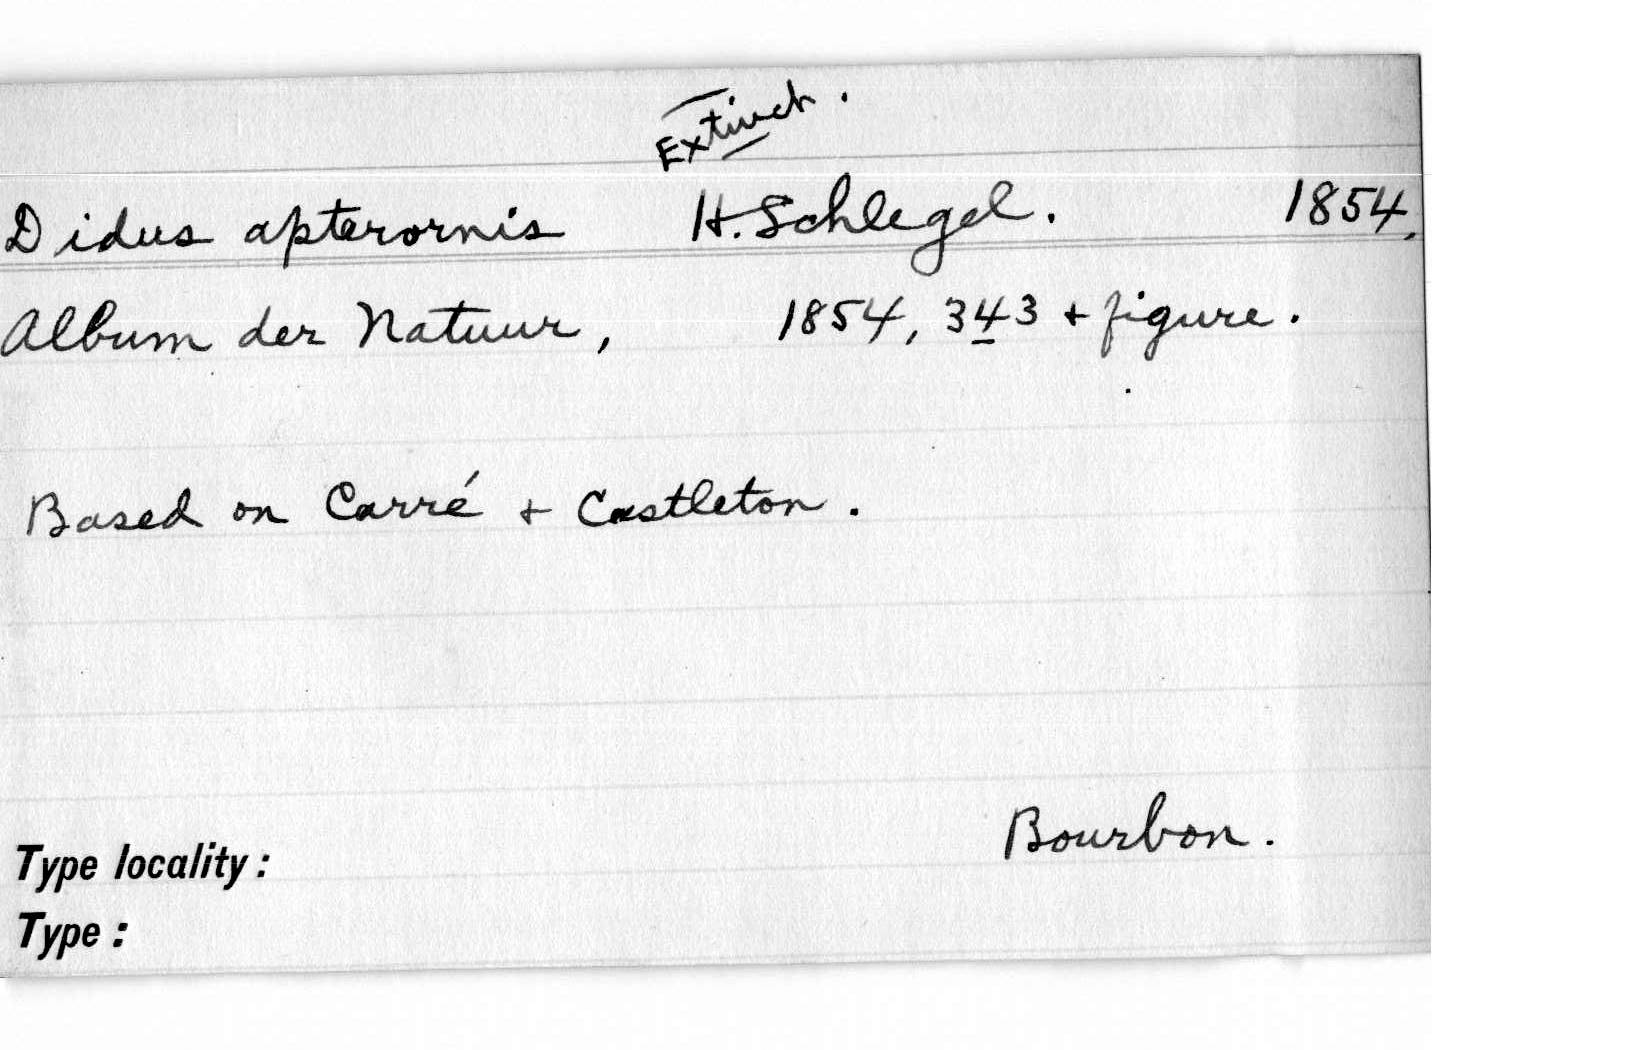 Extinct.
Didus apterornis H. Schlegel. 1854.
Album der Natuur, 1854, 343 + figure.
Based on Carré + Castleton.
Bourbon.
Type locality:
Type: